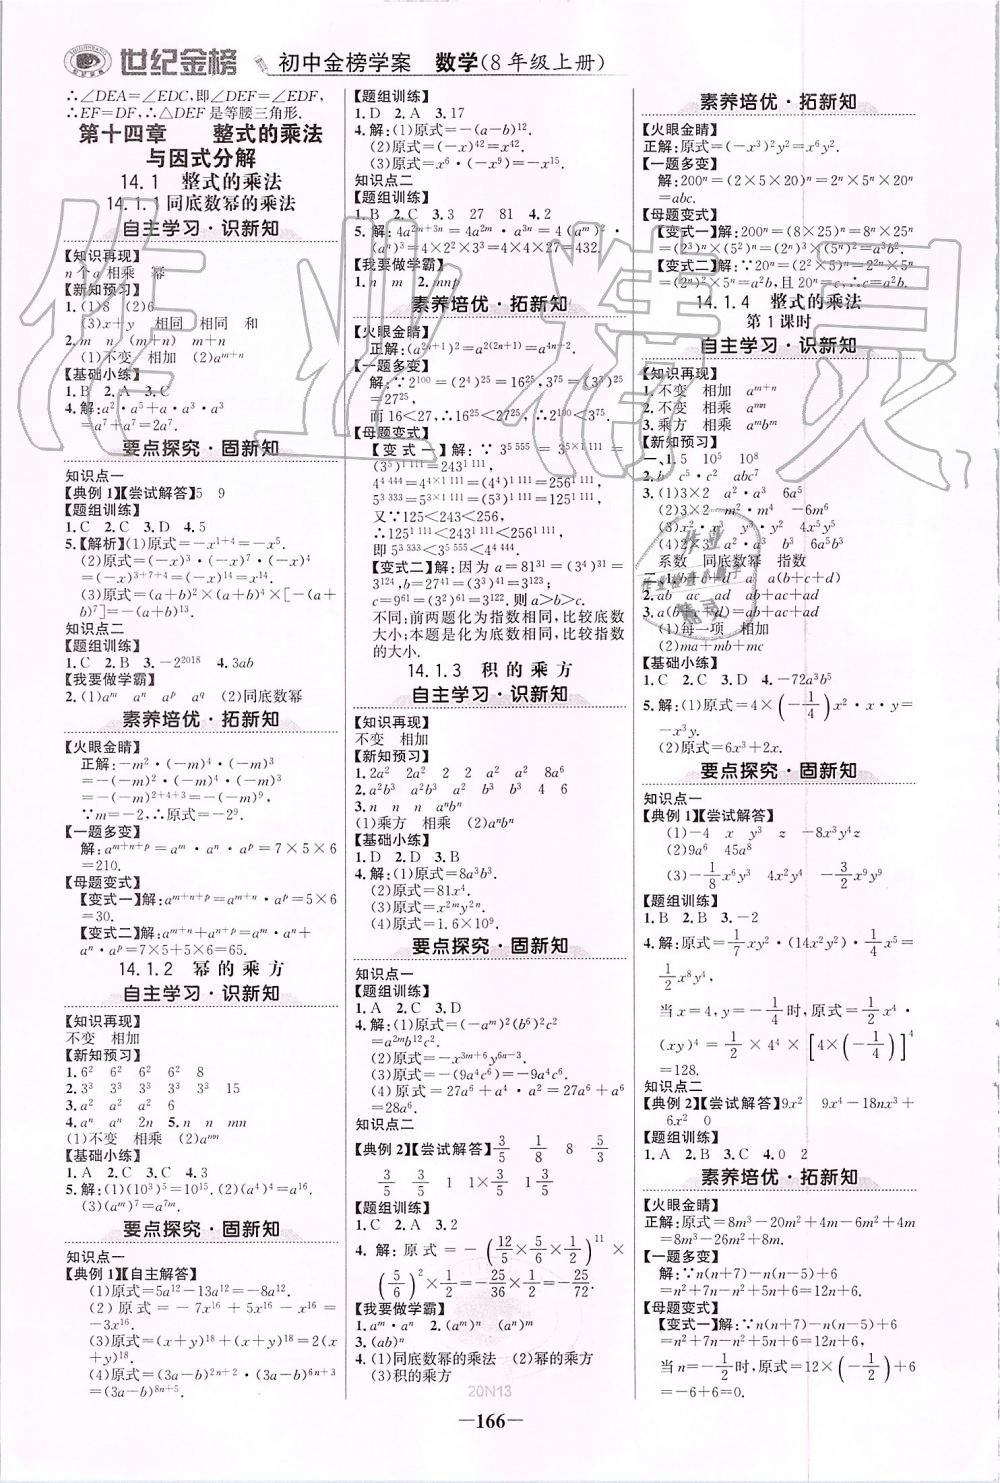 世纪金榜 初中金榜学案 数学(8年级上册)
∴∠DEA=∠EDC,即∠DEF=∠EDF,
∴EF=DF,∴△DEF是等腰三角形.
第十四章 整式的乘法
与因式分解
14.1 整式的乘法
14.1.1同底数幂的乘法
自主学习·识新知
【知识再现】
n个a相乘 幂
【新知预习】
1.(1)8 (2)6
(3)x+y 相同 相同 和
2.m n (m+n) m+n
(1)不变 相加 (2)a^{m+n}
【基础小练】
1.B 2.A 3.C
4.解:a²·a⁵+a·a³·a³
=a⁷+a⁷=2a⁷.
要点探究·固新知
知识点一
【典例1】【尝试解答】5 9
【题组训练】
1.C 2.C 3.D 4.5
5.【解析】(1)原式=-x^{1+4}=-x⁵.
(2)原式=(-x)³·(-x)⁷·(-x)⁴
=(-x)^{3+7+4}=(-x)^{14}=x^{14}.
(3)原式=(a+b)²×(a+b)⁴×[-(a+
b)⁷]=-(a+b)^{13}.
知识点二
【题组训练】
1.C 2.B 3.-2^{2018} 4.3ab
【我要做学霸】
2.(1)a^m a^n a^p a^s (2)同底数幂
素养培优·拓新知
【火眼金睛】
正解:-m²·(-m)⁴·(-m)³
=-(-m)²·(-m)⁴·(-m)³
=-(-m)^{2+4+3}=-(-m)⁹,
∵m=-2,∴原式=-2⁹.
【一题多变】
解:a^{m+n+p}=a^m·a^n·a^p=7×5×6
=210.
【母题变式】
【变式一】解:a^{m+n+p}=a^{m+n}·a^p=5×6
=30.
【变式二】解:a^{m+n}+a^{n+p}=a^m·a^n+
a^n·a^p=7×5+5×6=65.
14.1.2 幂的乘方
自主学习·识新知
【知识再现】
不变 相加
【新知预习】
1.6² 6² 6² 6² 8
2.3³ 3³ 3³ 3³ 3³ 15
3.a² a² a² 6
4.a^n a^n 2n 5.n n mn
(1)不变 相乘 (2)a^{mn}
【基础小练】
1.A 2.C 3.C 4.3
5.解:(1)(10³)⁵=10^{15}. (2)(a⁴)⁴=a^{16}.
(3)(a^m)⁷=a^{7m}.
要点探究·固新知
知识点一
【典例1】【自主解答】
(1)原式=5a^{12}-13a^{12}=-8a^{12}.
(2)原式=-7x^{16}+5x^{16}-x^{16}=
-3x^{16}.
(3)原式=(x+y)^{18}+(x+y)^{18}=2(x
+y)^{18}.
(4)原式=(3a-b)^{2n+2}·(3a-b)^{6n+3}=
(3a-b)^{8n+5}.
【题组训练】
1.D 2.A 3.17
4.解:(1)原式=-(a-b)^{12}.
(2)原式=(-x)^{42}=x^{42}.
(3)原式=x⁶·(-x⁹)=-x^{15}.
知识点二
【题组训练】
1.B 2.C 3.3 27 81 4.2
5.解:4a^{2m+3n}=4a^{2m}·a^{3n}=4(a^m)²·
(a^n)³=4×2²×3³=4×4×27=432.
【我要做学霸】
1.n m 2.mnp
素养培优·拓新知
【火眼金睛】
正解:(a^{2n+1})²=a^{2(2n+1)}=a^{4n+2}.
【一题多变】
解:∵2^{100}=(2⁴)^{25}=16^{25},3^{75}=(3³)^{25}
=27^{25},
而16<27,∴16^{25}<27^{25},∴2^{100}<3^{75}.
【母题变式】
【变式一】解:∵3^{5 555}=3^{5×1 111}=
(3⁵)^{1 111}=243^{1 111},
4^{4 444}=4^{4×1 111}=(4⁴)^{1 111}=256^{1 111},
5^{3 333}=5^{3×1 111}=(5³)^{1 111}=125^{1 111},
又∵125<243<256,
∴125^{1 111}<243^{1 111}<256^{1 111},
即5^{3 333}<3^{5 555}<4^{4 444}.
【变式二】解:因为a=81^{31}=(3⁴)^{31}=
3^{124},b=27^{41}=(3³)^{41}=3^{123};
c=9^{61}=(3²)^{61}=3^{122}.则a>b>c.
不同:前两题化为指数相同,比较底数
大小;本题是化为底数相同,比较指数
的大小.
14.1.3 积的乘方
自主学习·识新知
【知识再现】
不变 相加
【新知预习】
1.2a² 2a² 2 2 a² 8a⁶
2.a²b³ a²b³ a²b³ 6 6 4
3.n n n a^nb^n
(1)乘方 相乘 (2)a^nb^n
【基础小练】
1.D 2.D 3.B
4.解:(1)原式=8a³b³.
(2)原式=81x⁴.
(3)原式=x^{2m}y^{2n}.
(4)原式=1.6×10⁹.
要点探究·固新知
知识点一
【题组训练】
1.A 2.C 3.D
4.解:(1)原式=(-a^m)²(b⁶)²c²
=a^{2m}b^{12}c².
(2)原式=-x^{3m+6}y^{6n-3}.
(3)原式=-(9a⁴c⁶)=-9a⁴c⁶.
(4)原式=27a⁶+a⁴·a²=27a⁶+a⁶
=28a⁶.
知识点二
【典例2】【尝试解答】3/5 1/8 8 5/3
3/5 3/5 1 1 3/5
【题组训练】
1.C 2.A 3.2
4.解:原式=-(12/5×5/6×1/2)^{11}×
(5/6)²×1/2=-25/36×1/2=-25/72.
【我要做学霸】
1.a^m·a^n 2.(a^m)^n (a^n)^m
3.(ab)^n
4.(1)同底数幂的乘法 (2)幂的乘方
(3)积的乘方
素养培优·拓新知
【火眼金睛】
正解:原式=(-x³)²y²=x⁶y².
【一题多变】
解:200^n=(2×5×20)^n=2^n×5^n×20^n
=abc.
【母题变式】
【变式一】解:200^n=(8×25)^n=8^n×25^n
=(2³)^n×(5²)^n=(2^n)³×(5^n)²=a³b².
【变式二】解:∵20^n=(2²×5)^n=2^{2n}×5^n
=(2^n)²×5^n=a²b,且20^n=c,∴c=a²b.
14.1.4 整式的乘法
第1课时
自主学习·识新知
【知识再现】
1.不变 相加 a^{m+n}
2.不变 相乘 a^{mn}
3.乘方 相乘 a^mb^m
【新知预习】
一、1.5 10⁵ 10⁸
2.b c⁵·c² abc⁷
3.(1)3×2 a²·a³ 6a⁵
(2)3×-2 m²·m⁴ -6m⁶
(3)x²·x³ y³·y² 4x⁵y⁵
(4)2×3 a²·a³ b³ 6a⁵b³
系数 同底数幂 指数
二、1.b+c+d a(b+c+d)
2.ab ac ad ab+ac+ad
3.a(b+c+d)=ab+ac+ad
(1)每一项 相加
(2)ma+mb+mc
【基础小练】
1.C 2.C 3.D 4.-72a³b⁵
5.解:(1)原式=4×(-1/4)x²·x·y=
-x³y.
(2)原式=6x³+2x.
要点探究·固新知
知识点一
【典例1】【尝试解答】
(1)-4 x y³ z -8x³y⁴z
(2)9a⁶ 45a⁸
(3)-1/8x⁶y³ x³y⁴ -3/2x⁹y⁹
【题组训练】
1.B 2.B 3.-2
4.解:原式=1/7xy²·(14x²y)²·1/4x³=
1/2x⁸y⁴,
当x=4,y=-1/4时,原式=1/2x⁴
·(xy)⁴=1/2×4⁴×[4×(-1/4)]⁴
=128.
知识点二
【典例2】【尝试解答】9x² 9x⁴-18nx³+
6x² 0
【题组训练】
1.A 2.B 3.C 4.0 2
素养培优·拓新知
【火眼金睛】
正解:原式=8m³-20m²+4m-6m²+4m
=8m³-26m²+8m.
【一题多变】
解:∵n(n+7)-n(n-5)+6
=n²+7n-n²+5n+6=12n+6.
【母题变式】
【变式一】解:∵n(n+7)-n(n-5)+6
=n²+7n-n²+5n+6=12n+6,
当n=-1/2时,原式=12×(-1/2)+6
=-6+6=0.
20N13
—166—